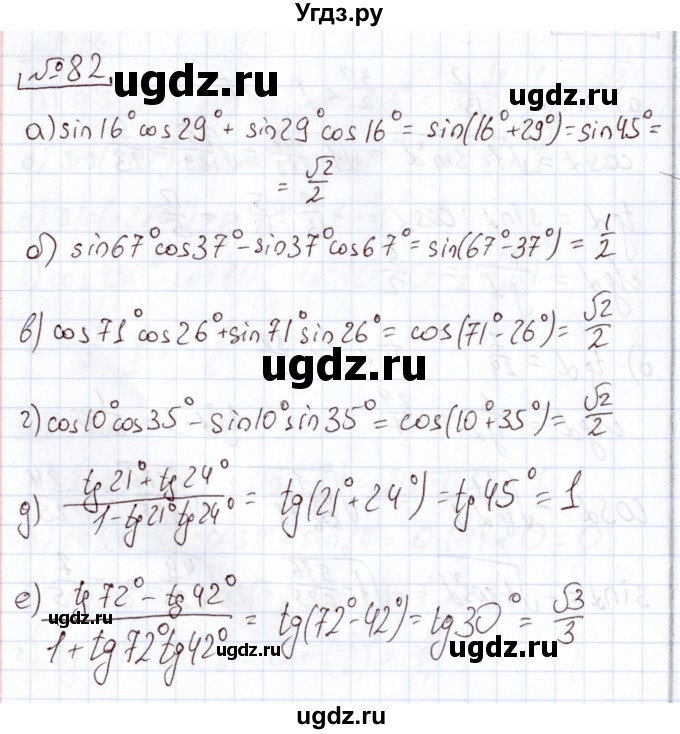 Угдз.ру
№82
ugdz.ru
а) sin16°cos29° + sin29°cos16° = sin(16°+29°) = sin45° =
= √2/2
ugdz.ru
ugdz.ru
б) sin67°cos37° - sin37°cos67° = sin(67°-37°) = 1/2
в) cos71°cos26° + sin71°sin26° = cos(71°-26°) = √2/2
ugdz.ru
г) cos10°cos35° - sin10°sin35° = cos(10°+35°) = √2/2
д) (tg21° + tg24°)/(1 - tg21°tg24°) = tg(21°+24°) = tg45° = 1
ugdz.ru
ugdz.ru
е) (tg72° - tg42°)/(1 + tg72°tg42°) = tg(72°-42°) = tg30° = √3/3
ugdz.ru
ugdz.ru
ugdz.ru
ugdz.ru